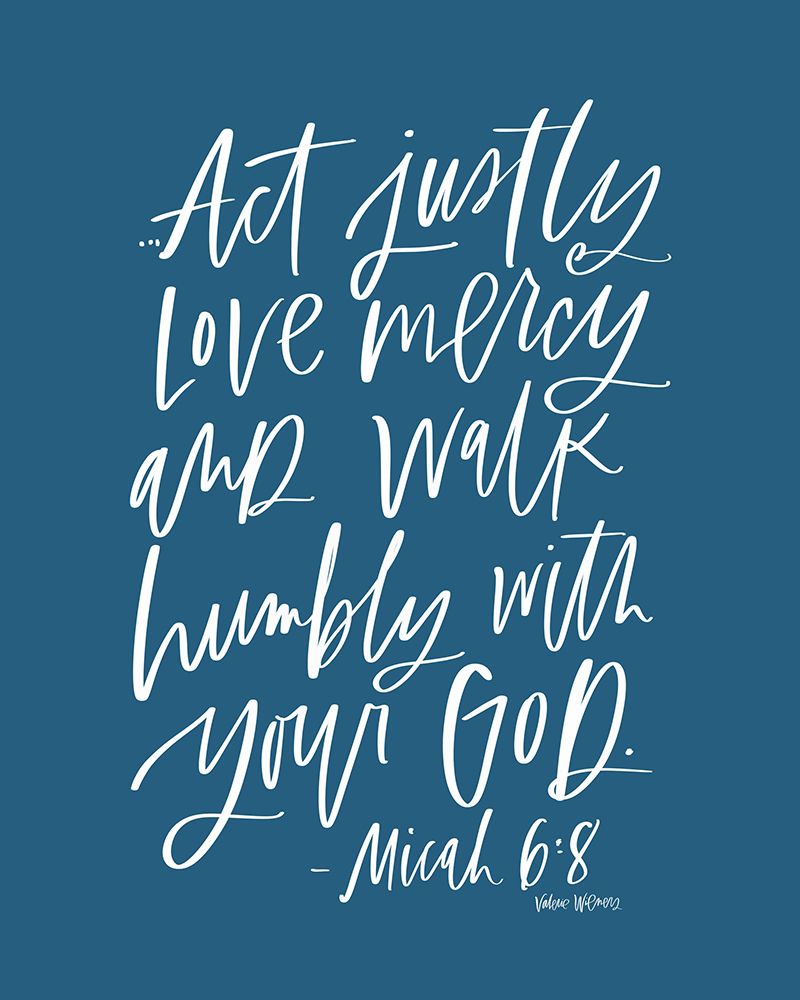 ...Act justly
Love mercy
and walk
humbly with
your GOD.
- Micah 6:8
Valerie Wieners